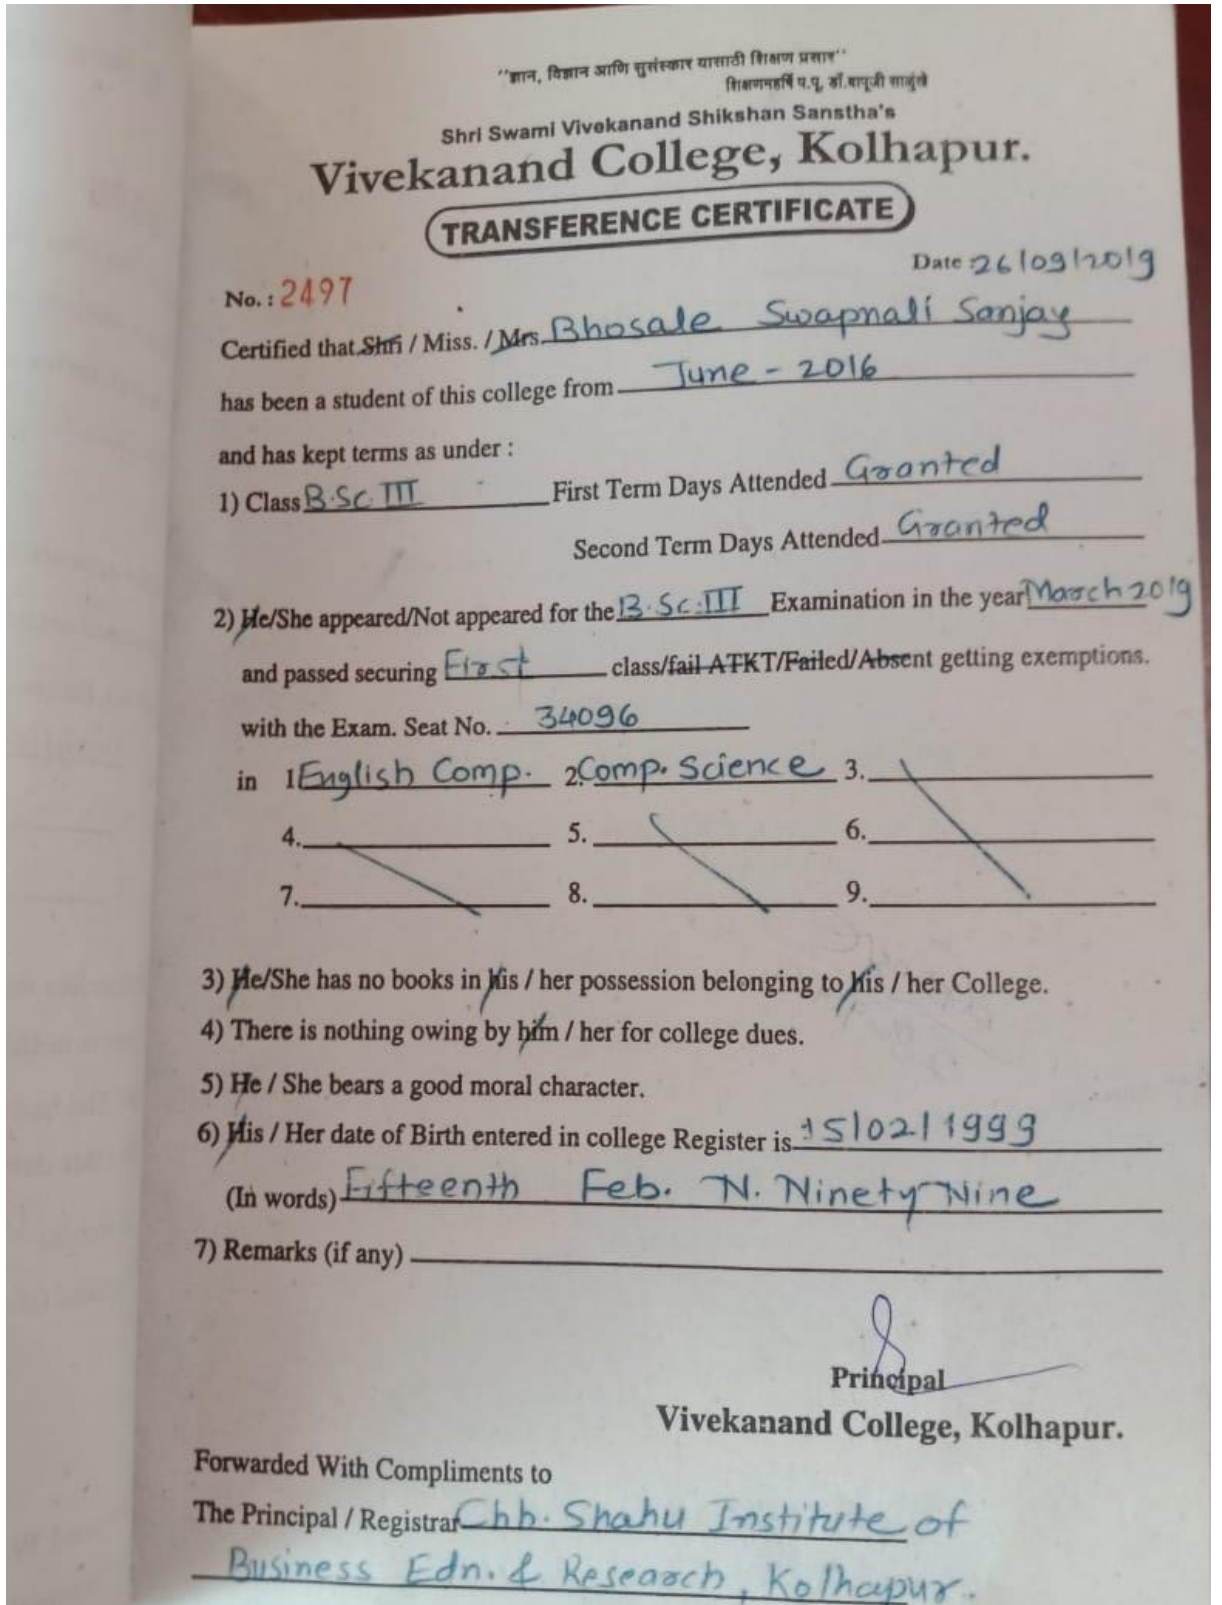 "ज्ञान, विज्ञान आणि सुसंस्कार यासाठी शिक्षण प्रसार"
शिक्षणमहर्षि प.पू. डॉ.बापूजी साळुंखे
Shri Swami Vivekanand Shikshan Sanstha's
Vivekanand College, Kolhapur.
TRANSFERENCE CERTIFICATE
Date :26/09/2019
No. : 2497
Certified that Shri / Miss. / Mrs. Bhosale Swapnali Sanjay
has been a student of this college from June - 2016
and has kept terms as under :
1) Class B.Sc. III First Term Days Attended Granted
Second Term Days Attended Granted
2) He/She appeared/Not appeared for the B.Sc.III Examination in the year March 2019
and passed securing First class/fail ATKT/Failed/Absent getting exemptions.
with the Exam. Seat No. 34096
in 1. English Comp. 2. Comp. Science 3.
4. 5. 6.
7. 8. 9.
3) He/She has no books in his / her possession belonging to his / her College.
4) There is nothing owing by him / her for college dues.
5) He / She bears a good moral character.
6) His / Her date of Birth entered in college Register is 15/02/1999
(In words) Fifteenth Feb. N. Ninety Nine
7) Remarks (if any)
Principal
Vivekanand College, Kolhapur.
Forwarded With Compliments to
The Principal / Registrar Chh. Shahu Institute of
Business Edn. & Research, Kolhapur.